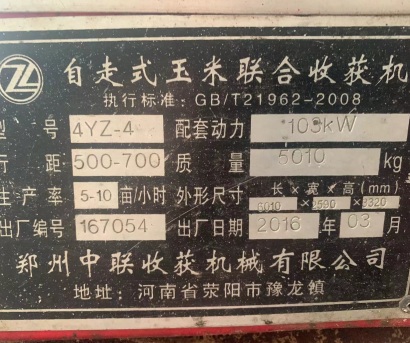 自走式玉米联合收获机
执行标准: GB/T21962-2008
型 号 4YZ-4 配套动力 103kW
行 距 500-700 质 量 5010 kg
生产率 5-10 亩/小时 外形尺寸 长×宽×高(mm) 6010×2590×3320
出厂编号 167054 出厂日期 2016 年 03 月
郑州中联收获机械有限公司
地址: 河南省荥阳市豫龙镇